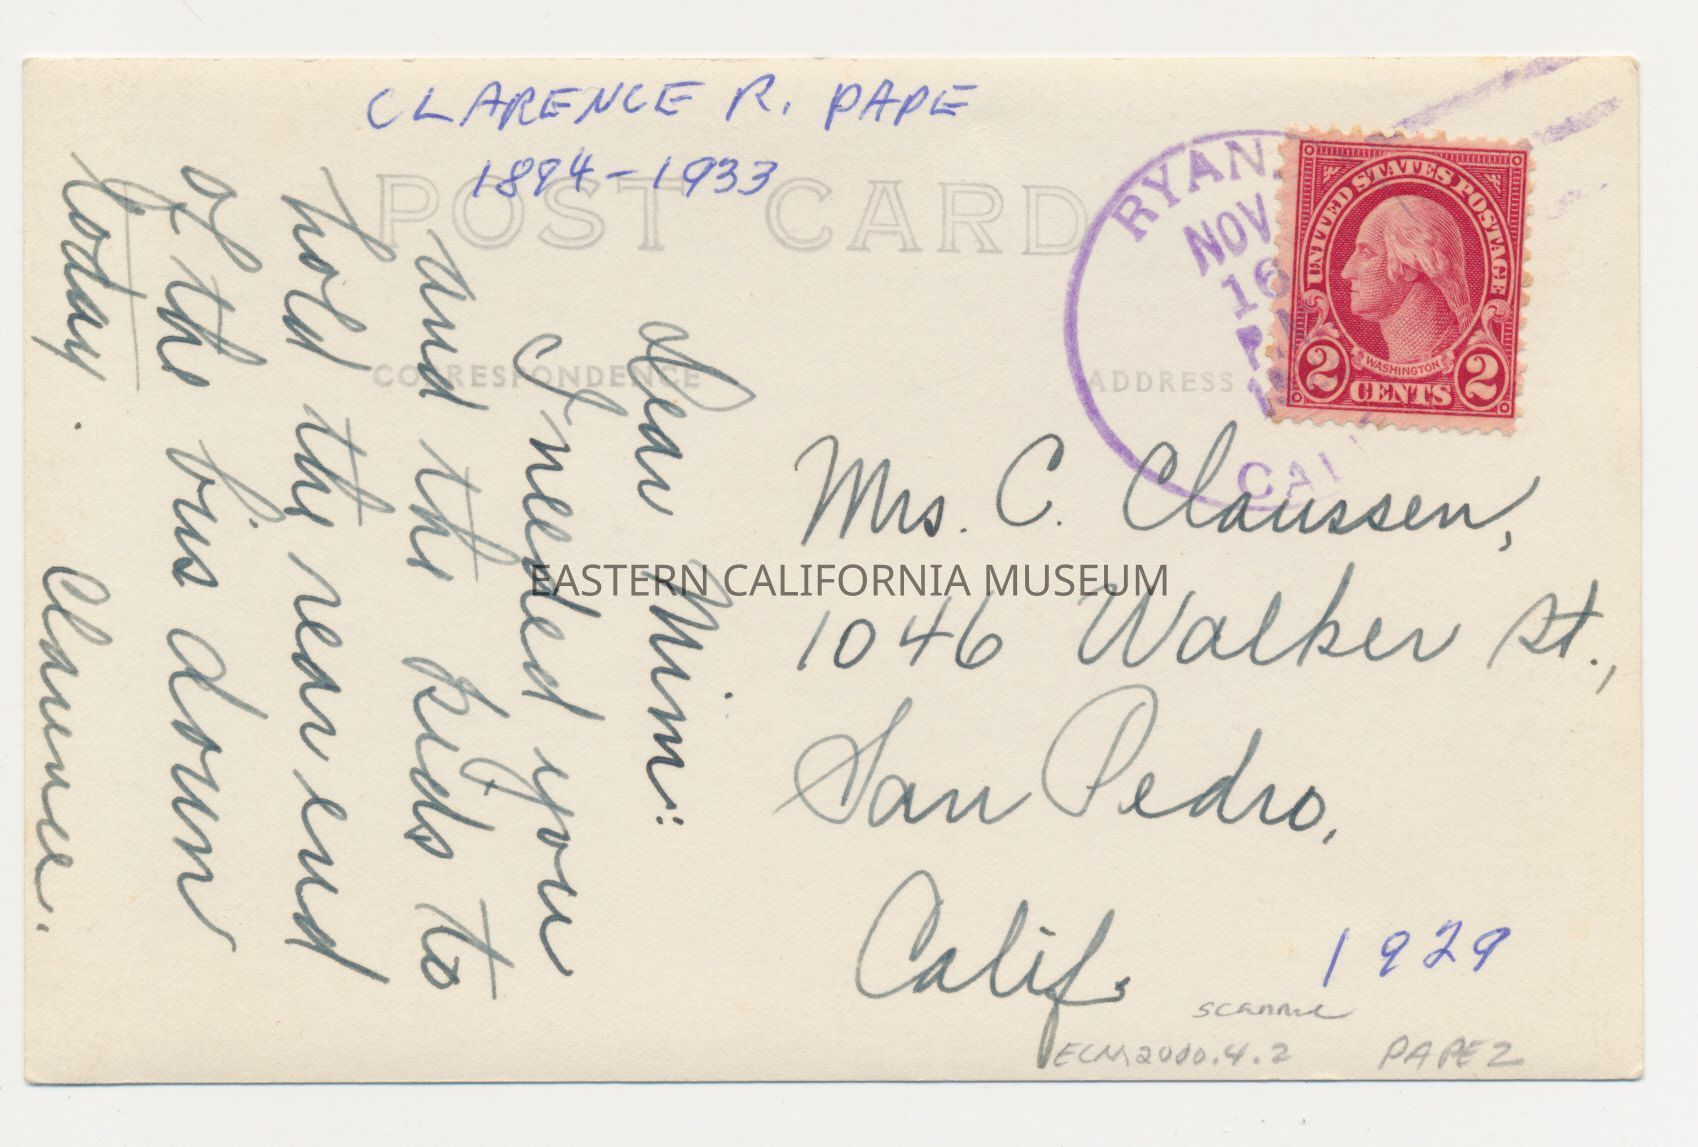 CLARENCE R. PAPE
1894-1933
POST CARD
CORRESPONDENCE
ADDRESS
RYAN,
NOV
16
CAL
UNITED STATES POSTAGE
WASHINGTON
2 CENTS 2
Dear Mim:
I needed you
and the kids to
hold the rear end
of the bus down
today.
Clarence.
Mrs. C. Claussen,
1046 Walker St.,
San Pedro,
Calif.
1929
ECM2000.4.2
PAPE2
EASTERN CALIFORNIA MUSEUM